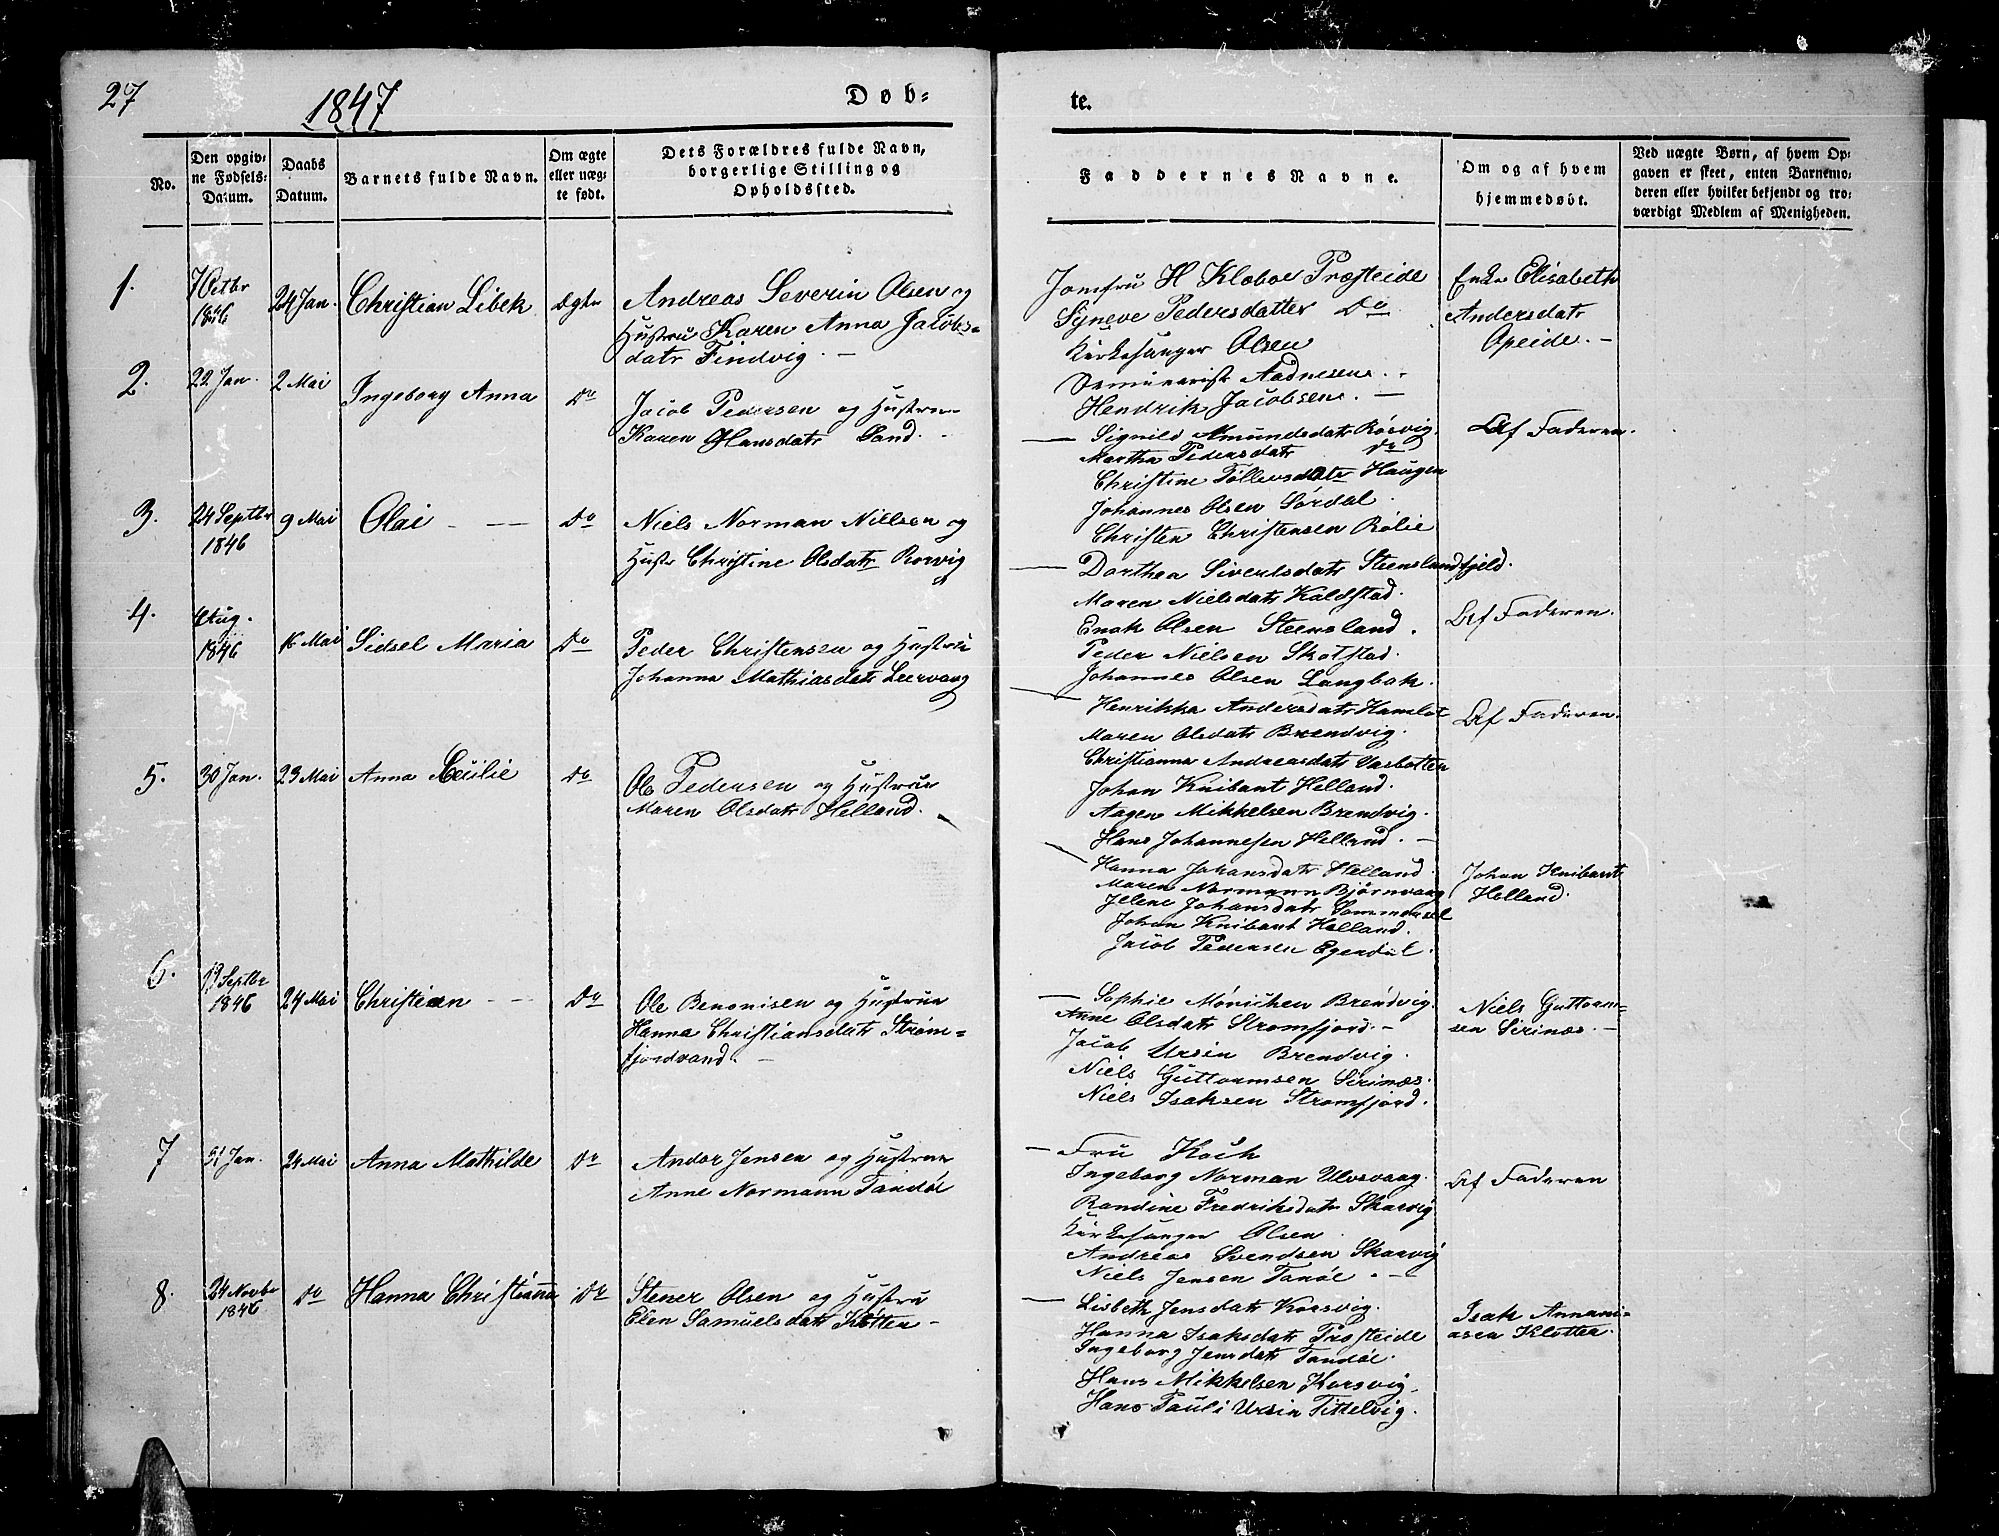 27
1847
Døb-
te.
No.
Den opgiv-
ne Fødsels-
Datum.
Daabs
Datum.
Barnets fulde Navn.
Om ægte
eller uæg-
te født.
Dets Forældres fulde Navn,
borgerlige Stilling og
Opholdssted.
Faddernes Navne.
Om og af hvem
hjemmedøbt.
Ved uægte Børn, af hvem Op-
gaven er skeet, enten Barnemo-
deren eller hvilket bekjendt og tro-
værdigt Medlem af Menigheden.
1.
7 Octbr
1846
24 Jan.
Christian Libek
Ægte
Andreas Severin Olsen og
Hustru Karen Anna Jacobs-
datr Findvig. -
Jomfru H Klæboe Præsteide
Syneve Pedersdatter Do
Kirkesanger Olsen
Seminarist Aadnesen. -
Hendrik Jacobsen. -
Enke Elisabeth
Andersdatr
Opeide. -
2.
22 Jan.
2 Mai
Ingeborg Anna
Do
Jacob Pedersen og Hustru
Karen Hansdatr Sand. -
- Signild Amundsdatr Rørvig.
Martha Pedersdatr Do
Christine Tollevsdatr Haugen
Johannes Olsen Sørdal.
Christen Christensen Rølie
Af Faderen.
3.
24 Septbr
1846
9 Mai
Olai - --
Do
Niels Norman Nielsen og
Hustr Christine Olsdatr Rorvig
- Dorthea Sivertsdatr Steenslandfjeld.
Maren Nielsdatr Kaldstad.
Enok Olsen Steensland.
Peder Nielsen Skotstad.
Johannes Olsen Langbak.
Af Faderen.
4.
Aug.
1846
16 Mai
Sidsel Maria
Do
Peder Christensen og Hustru
Johanna Mathiasdatr Leervaag
- Henrikka Andersdatr
Maren Olsdatr Brendvig.
Christianna Andreasdatr Vasbotten
Johan Knibant Helland.
Aagen Mikkelsen Brendvig.
Hans Johannesen Helland. -
Af Faderen.
5.
30 Jan.
23 Mai
Anna Cecilie
Do
Ole Pedersen og Hustru
Maren Olsdatr Helland.
- Hanna Johansdatr Helland
Maren Normann Bjørnvaag
Jelene Johansdatr Sommersel
Johan Knibant Helland.
Jacob Pedersen Egendal.
Johan Knibant
Helland.
6.
19 Septbr
1846
24 Mai
Christian - --
Do
Ole Benonisen og Hustru
Hanna Christiansdatr Strøm-
fjordvand. -
- Sophie Mønichen Brendvig.
Anne Olsdatr Stromfjord. -
Jacob Ursin Brendvig.
Niels Guttormsen Sirinæs.
Niels Isaksen Stromfjord.
Niels Guttorm-
sen Sirinæs. -
7
31 Jan.
24 Mai
Anna Mathilde
Do
Andor Jensen og Hustru
Anne Normann Tandøe
- Fru Koch
Ingeborg Norman Ulvsvaag.
Randine Fredriksdatr Skarvig
Kirkesanger Olsen.
Andreas Svendsen Skarvig
Niels Jensen Tanøe. -
Af Faderen
8.
24 Novbr
1846
Do
Hanna Christianna
Do
Stener Olsen og Hustru
Elen Samuelsdatr Kløtten -
- Lisbeth Jensdatr Korsvig.
Hanna Isaksdatr Prøsteide
Ingeborg Jensdatr Tandøe.
Hans Mikkelsen Korsvig.
Hans Pauli Ursin Tittelvig.
Isak Annani-
asen Kløtten.